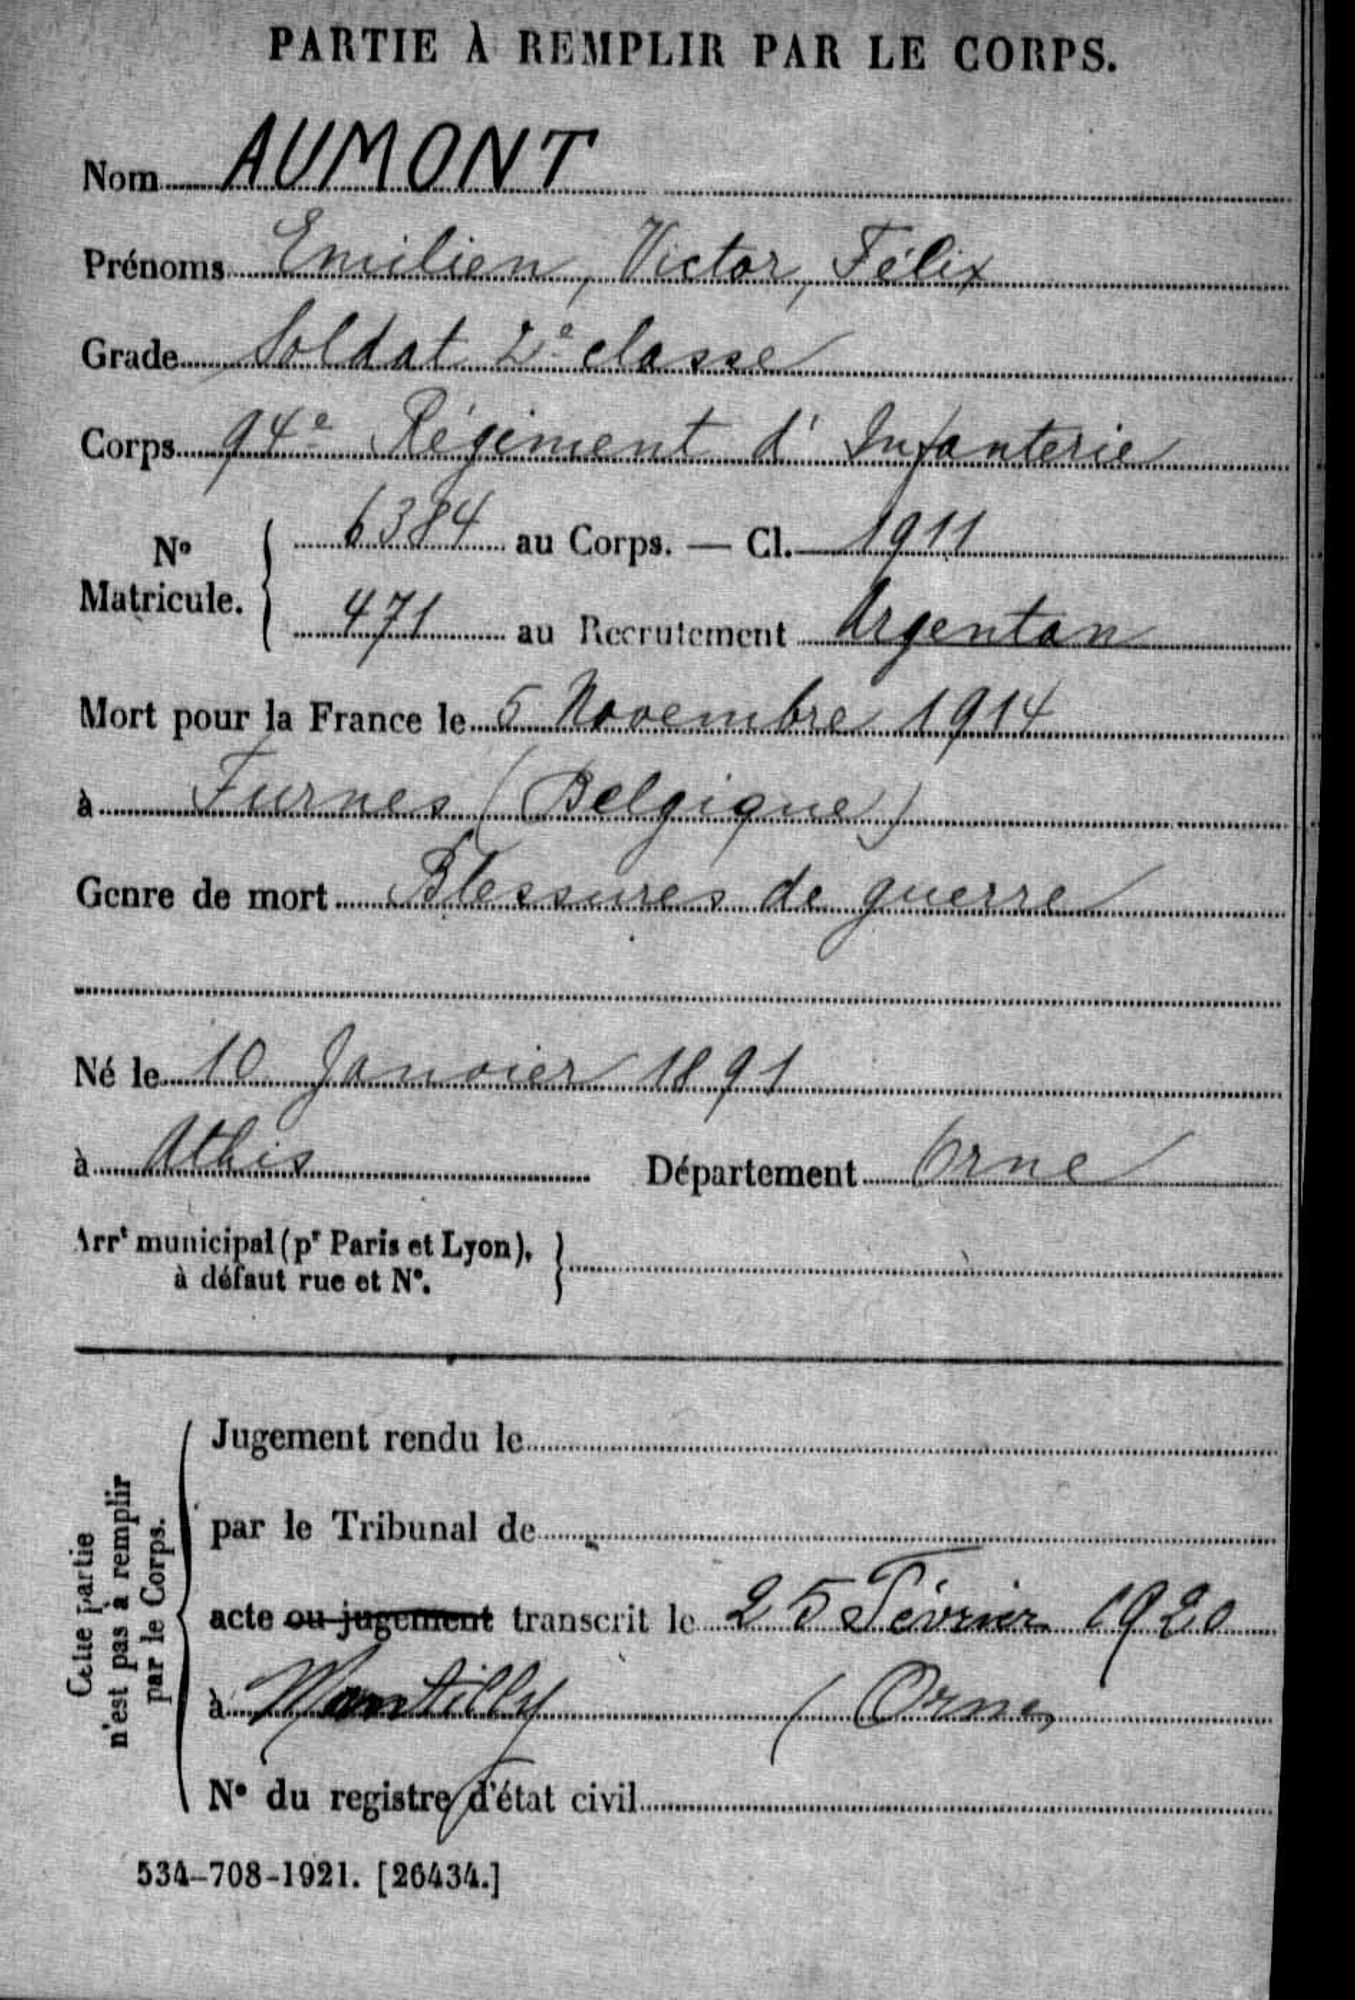 PARTIE À REMPLIR PAR LE CORPS.
Nom AUMONT
Prénoms Emilien, Victor, Félix
Grade Soldat 2e classe
Corps 94e Régiment d'Infanterie
No Matricule. { 6384 au Corps. — Cl. 1911
471 au Recrutement Argentan
Mort pour la France le 5 Novembre 1914
à Furnes (Belgique)
Genre de mort Blessures de guerre
Né le 10 Janvier 1891
à Athis Département Orne
Arrt municipal (pr Paris et Lyon), }
à défaut rue et No.
Cette partie
n'est pas à remplir
par le Corps.
Jugement rendu le
par le Tribunal de
acte ou jugement transcrit le 25 Février 1920
à Montilly (Orne)
No du registre d'état civil
534-708-1921. [26434.]